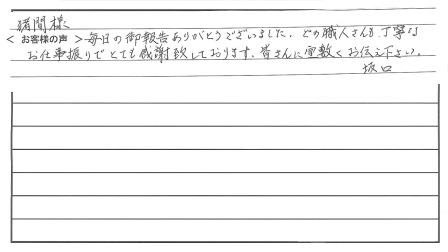 猪間様
< お客様の声 > 毎日の御報告ありがとうございました。どの職人さんも丁寧な
お仕事振りでとても感謝致しております。皆さんに宜敷くお伝え下さい。
坂口